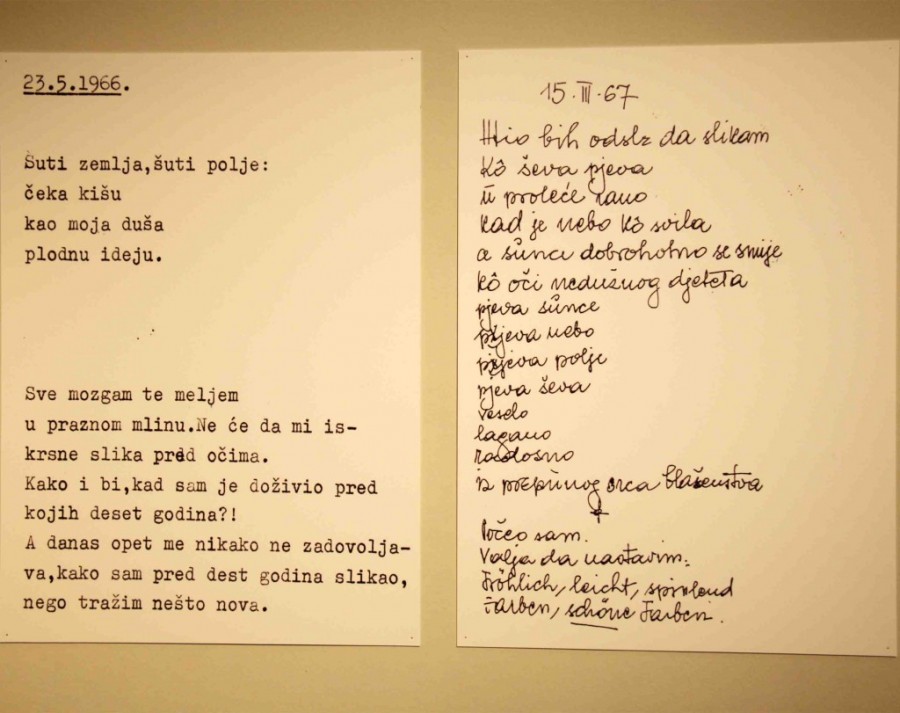 23.5.1966.
Šuti zemlja,šuti polje:
čeka kišu
kao moja duša
plodnu ideju.
Sve mozgam te meljem
u praznom mlinu.Ne će da mi is-
krsne slika pred očima.
Kako i bi,kad sam je doživio pred
kojih deset godina?!
A danas opet me nikako ne zadovolja-
va,kako sam pred dest godina slikao,
nego tražim nešto nova.
15.III.67
Htio bih da slikam
Kô ševa pjeva
u proleće rano
kad je nebo kô svila
a sunce dobrohotno se smije
kô oči nedužnog djeteta
pjeva sunce
pjeva nebo
pjeva polje
pjeva ševa
veselo
lagano
radosno
iz prepunog srca blaženstva
Počeo sam.
Valja da nastavim.
Fröhlich, leicht, spielend
Farben, schöne Farben.